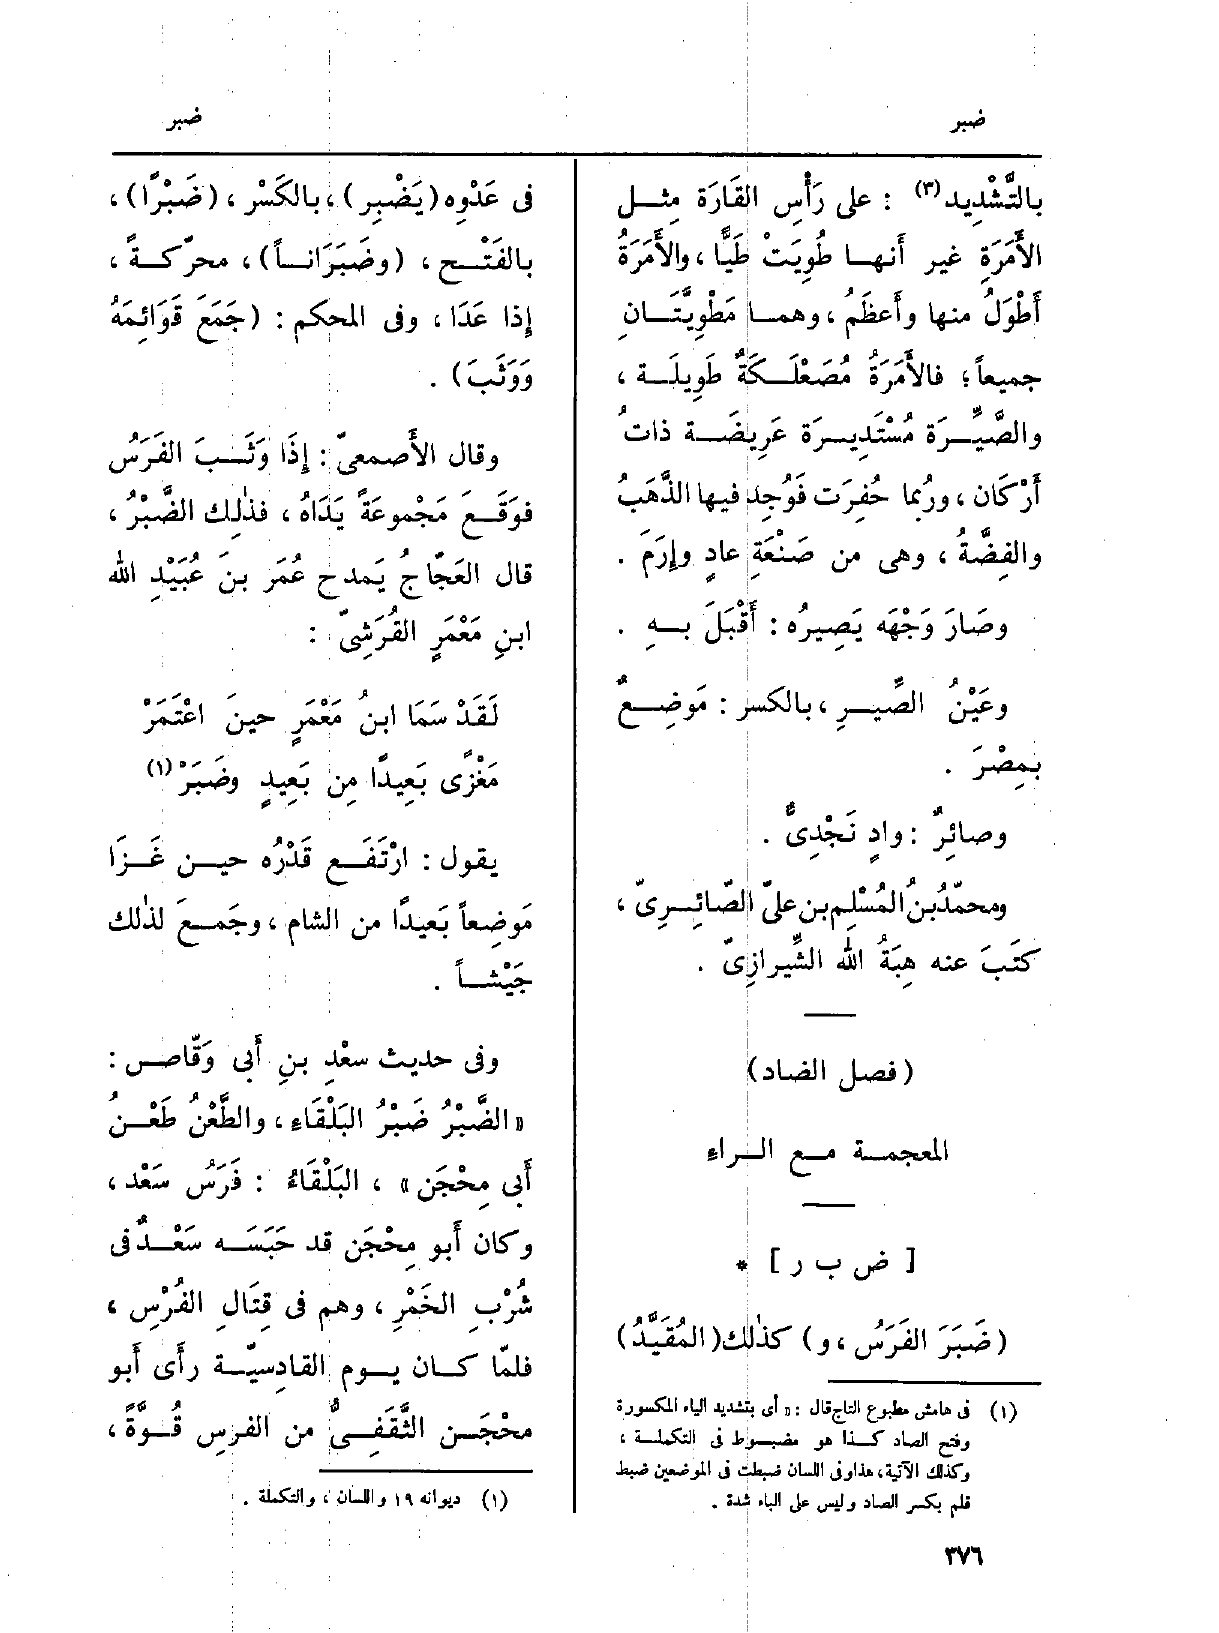 ضبر
ضبر
بالتَّشْدِيد(٣) : على رَأْسِ القَارَة مِثـل
الأَمَرَةِ غير أَنهـا طُوِيَتْ طَيًّا ، والأَمَرَةُ
أَطْوَلُ منها وأَعظَمُ ، وهمـا مَطْوِيَّتَـانِ
جميعاً ؛ فالأَمَرَةُ مُصَعْلَـكَةٌ طَوِيلَـة ،
والصَّيِّـرَة مُسْتَدِيـرَة عَرِيضَـة ذاتُ
أَرْكَان ، ورُبما حُفِرَت فَوُجِد فيها الذَّهَبُ
والفِضَّةُ ، وهى من صَنْعَةِ عادٍ وإِرَمَ .
وصَارَ وَجْهَه يَصِيرُه : أَقْبَلَ بـهِ .
وعَيْنُ الصِّيـرِ ، بالكسر : مَوْضِـعٌ
بِمِصْرَ .
وصائِرٌ : وادٍ نَجْدِىٌّ .
ومحمّدُ بنُ المُسْلِمِ بن علىّ الصّائِـرِىّ ،
كتَبَ عنه هِبَةُ الله الشِّيرازِىّ .
(فصل الضاد)
المعجمـة مـع الـراء
[ ض ب ر ] *
(ضَبَرَ الفَرَسُ ، و) كذٰلك (المُقَيَّدُ)
(١) فى هامش مطبوع التاج قال : « أى بتشديد الياء المكسورة
وفتح الصاد كـذا هو مضبـوط فى التكملـة ،
وكذلك الآتية ، هذا وفى اللسان ضبطت فى الموضعين ضبط
قلم بكسر الصاد وليس على الياء شدة .
فى عَدْوِه (يَضْبِر) ، بالكَسْر ، (ضَبْرًا) ،
بالفَتْـح ، (وضَبَرَانـاً) ، محرّكـةً ،
إِذا عَدَا ، وفى المحكم : (جَمَعَ قَوَائِمَهُ
وَوَثَبَ) .
وقال الأَصمعىّ : إِذَا وَثَـبَ الفَرَسُ
فوَقَـعَ مَجْموعَةً يَدَاهُ ، فذٰلِك الضَّبْرُ ،
قال العَجّاج يَمدح عُمَر بنَ عُبَيْدِ الله
ابنِ مَعْمَرٍ القُرَشِىّ :
لَقَدْ سَمَا ابنُ مَعْمَرٍ حينَ اعْتَمَرْ
مَغْزًى بَعِيدًا مِن بَعِيدٍ وضَبَرْ(١)
يقول : ارْتَفَـع قَدْرُه حيـن غَـزَا
مَوضِعاً بَعيدًا من الشام ، وجَمـعَ لذٰلك
جَيْشـاً .
وفى حديث سعْدِ بنِ أَبى وَقّاصٍ :
« الضَّبْرُ ضَبْرُ البَلْقَاءِ ، والطَّعْنُ طَعْـنُ
أَبى مِحْجَن » ، البَلْقَاءُ : فَرَسُ سَعْد ،
وكان أَبو مِحْجَن قد حَبَسَـه سَعْـدٌ فى
شُرْبِ الخَمْرِ ، وهم فى قِتَالِ الفُرْس ،
فلمّا كـان يـوم القادسِيّـة رأَى أَبو
محْجَـن الثَّقَفِـىُّ من الفرس قُـوَّةً ،
(١) ديوانه ١٩ واللسان ، والتكملة .
٣٧٦